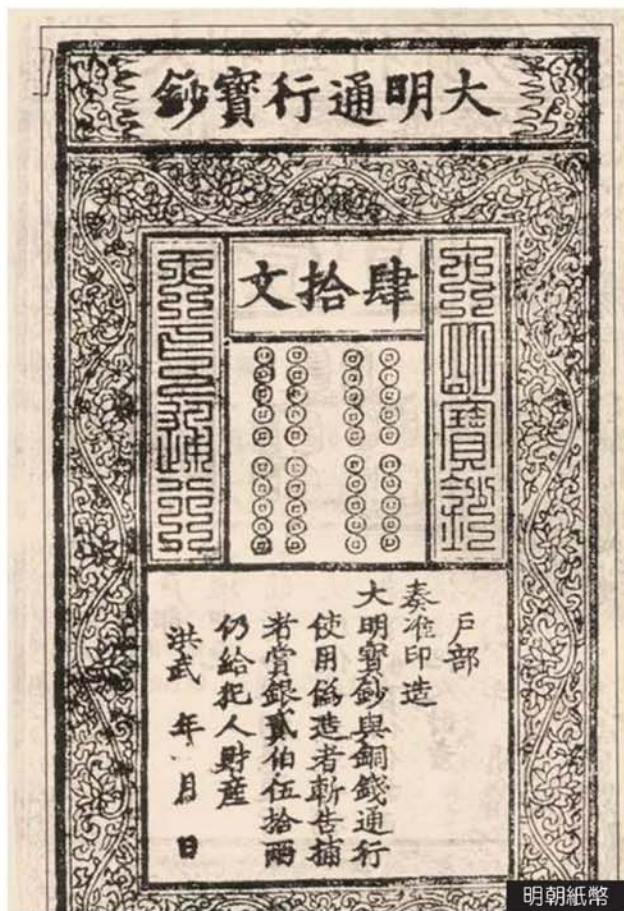 大明通行寶鈔
肆拾文
大明寶鈔
天下通行
户部
奏准印造
大明寶鈔與銅錢通行
使用僞造者斬告捕
者賞銀貳伯伍拾兩
仍給犯人財産
洪武 年 月 日
明朝紙幣